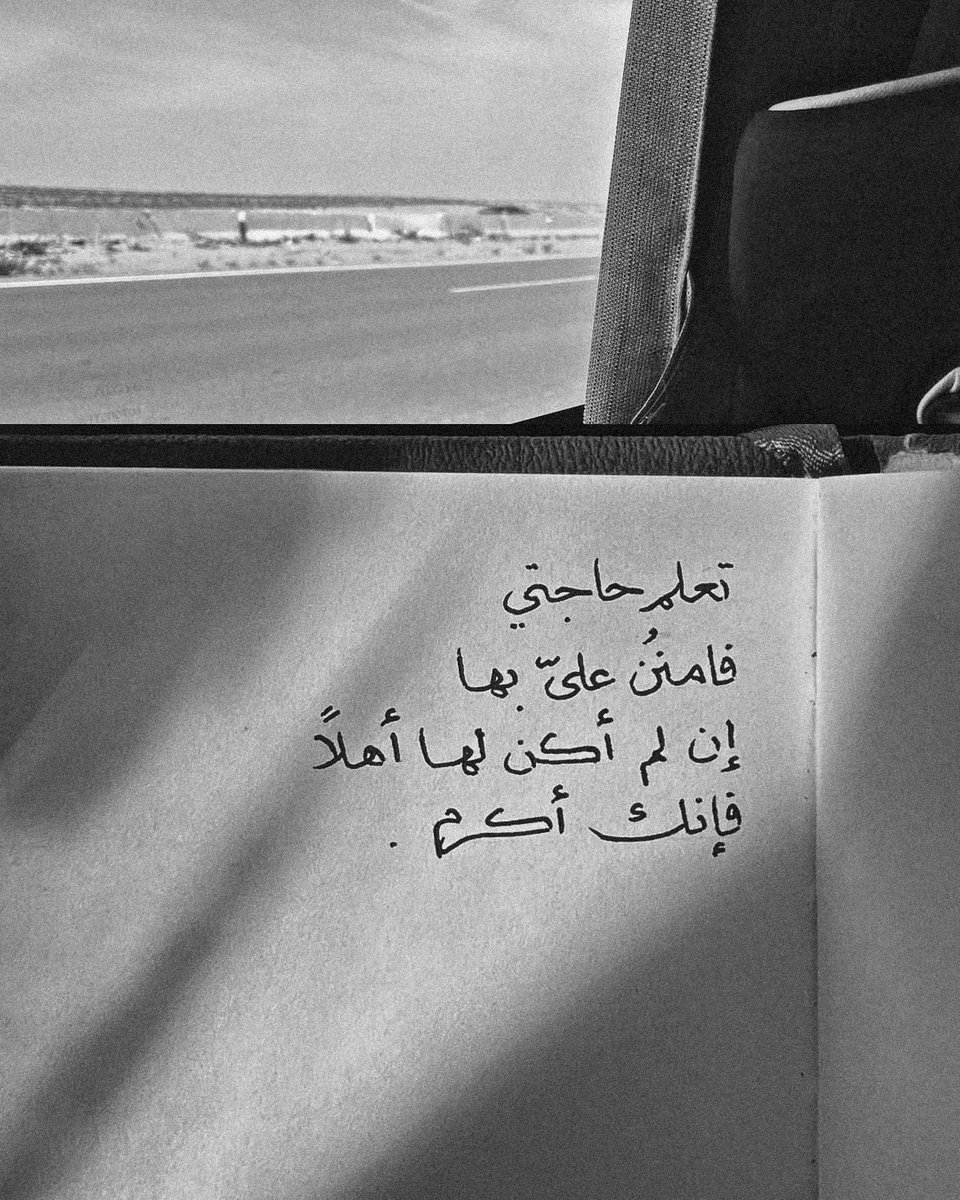 تعلم حاجتي
فامننُ عليّ بها
إن لم أكن لها أهلاً
فإنك أكرم .